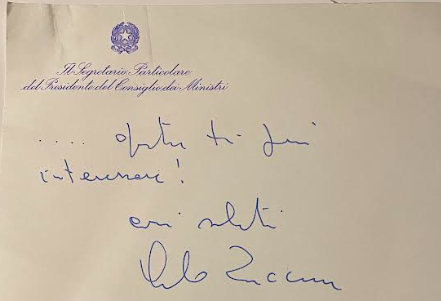 Il Segretario Particolare
del Presidente del Consiglio dei Ministri
.... ti può
interessare!
cari saluti